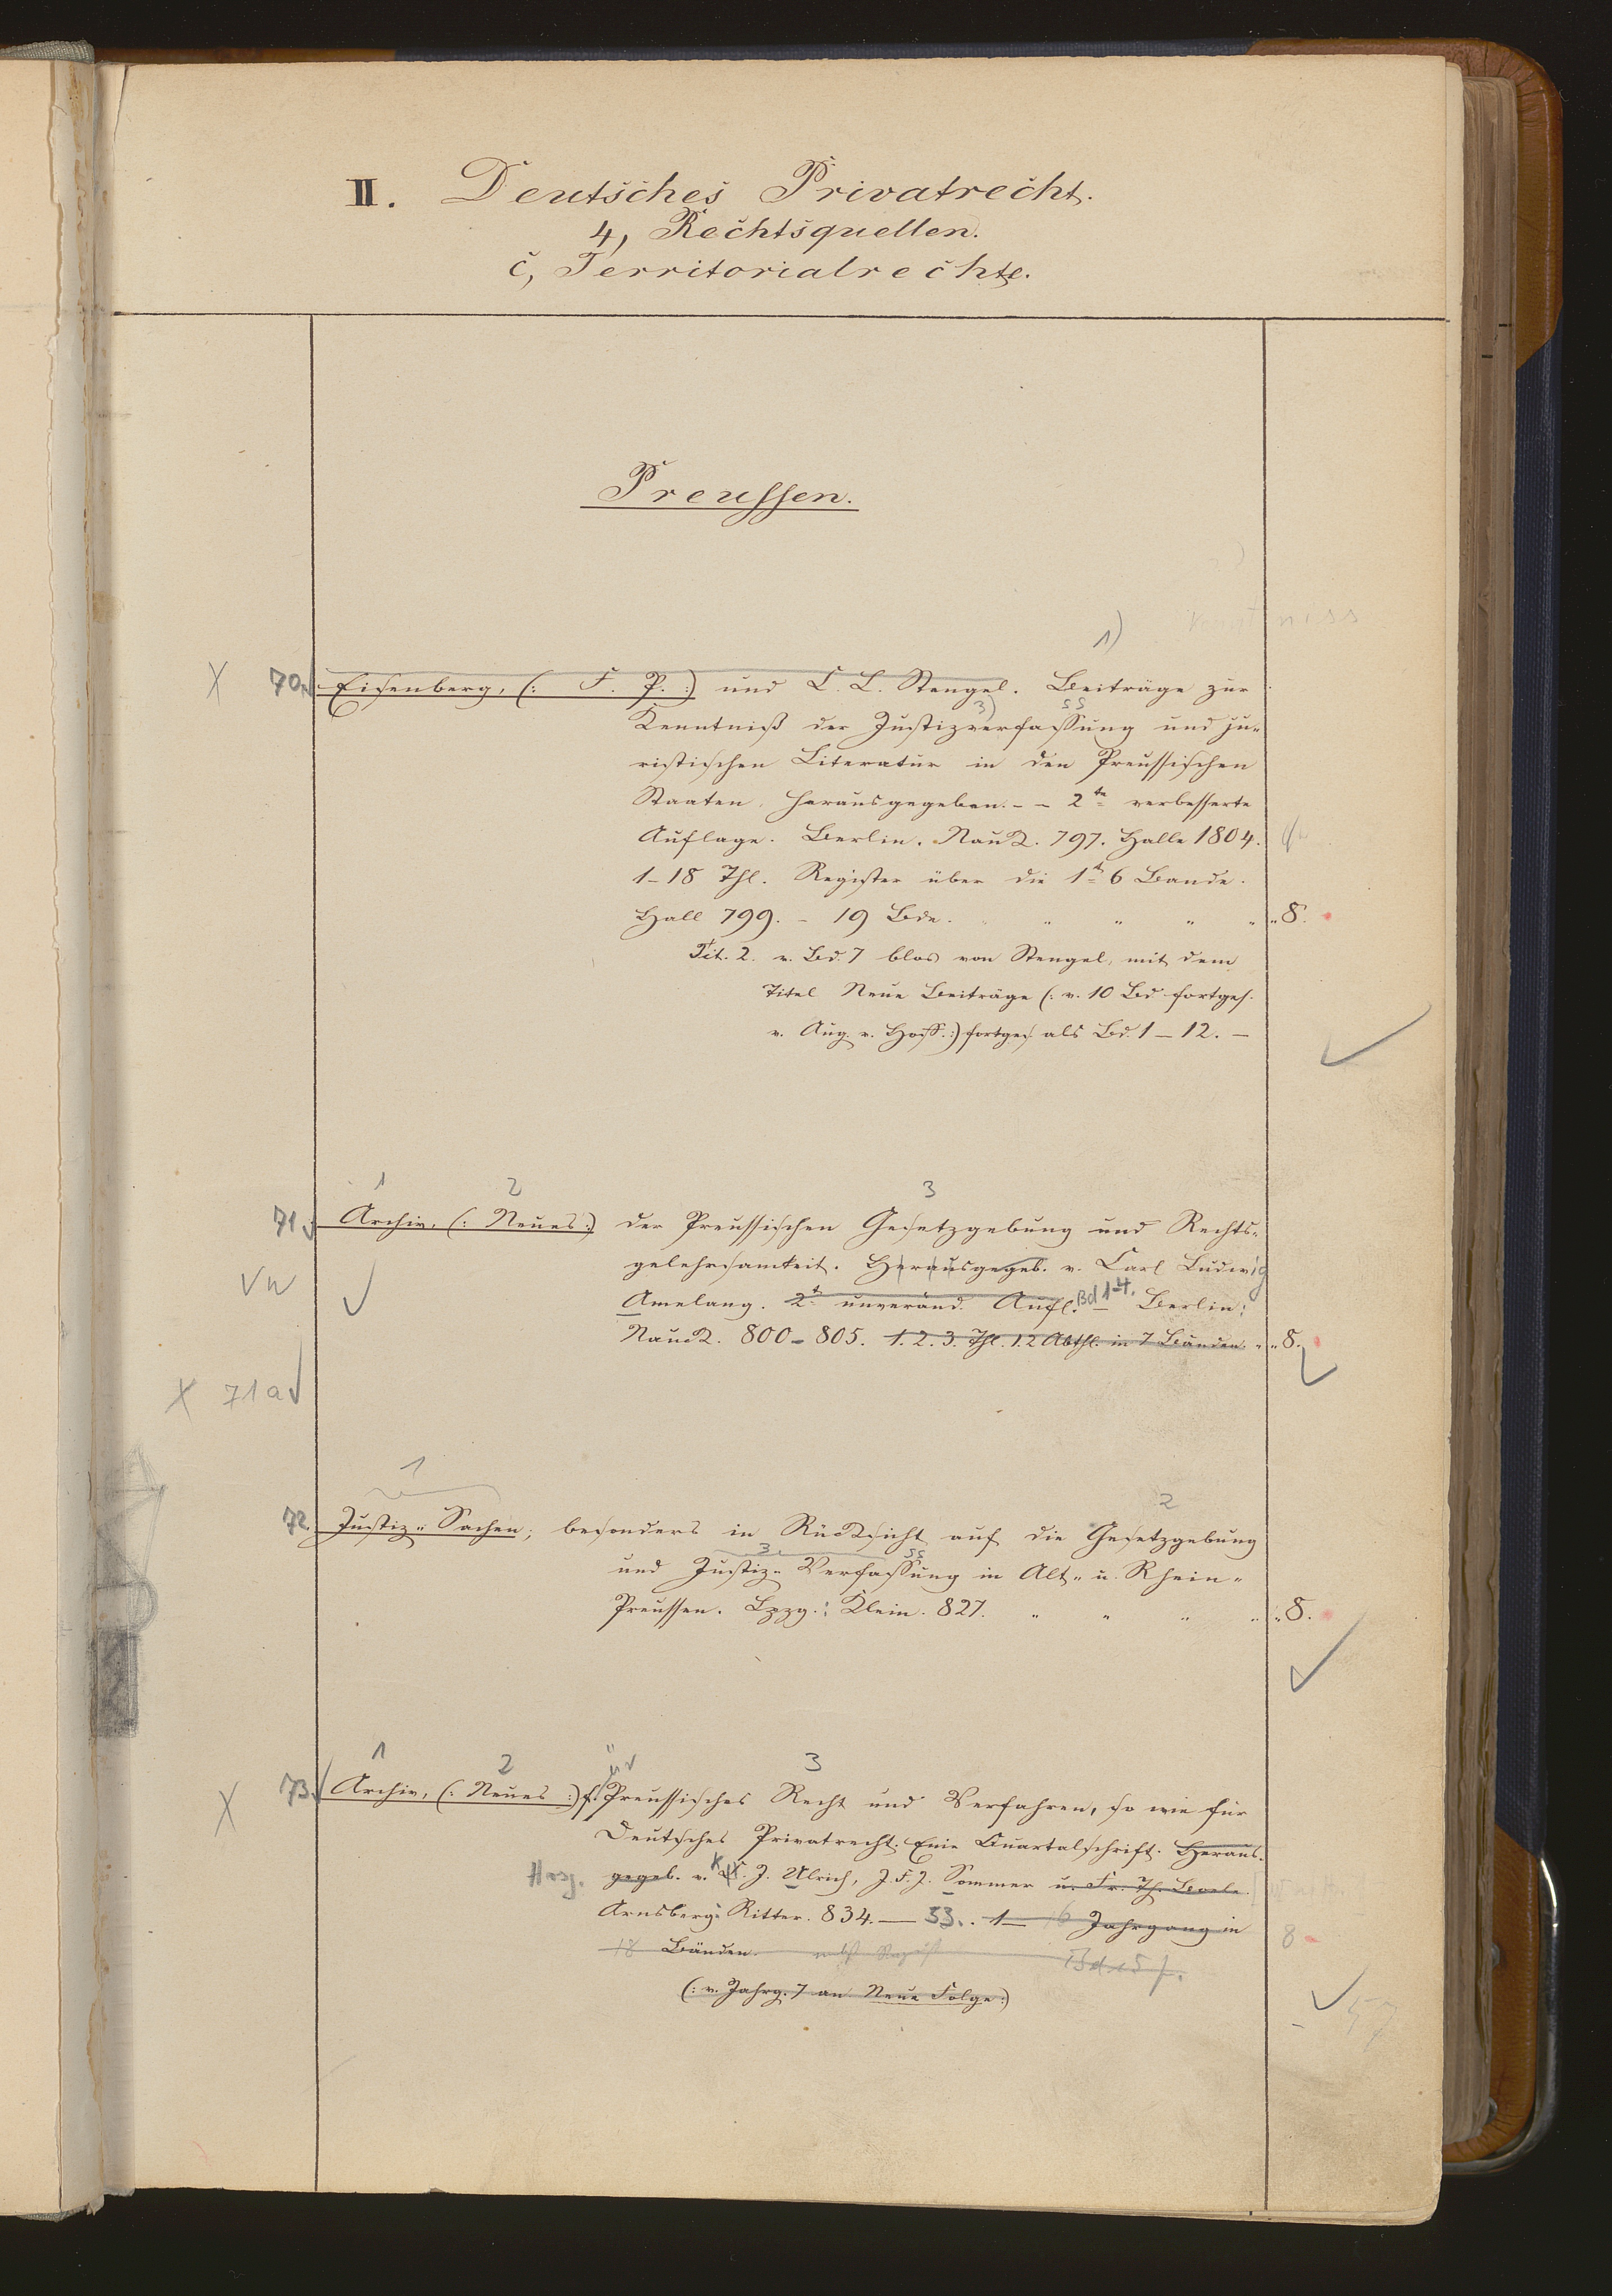 II. Deutsches Privatrecht.
4, Rechtsquellen.
c, Territorialrechte.
Preussen.
1)
X 70. Eisenberg, (: F. P. :) und C. L. Stengel. Beiträge zur
3) ss
Kenntniß der Justizverfassung und ju-
ristischen Literatur in den Preussischen
Staaten, herausgegeben. - - 2te verbesserte
Auflage. Berlin. Nauck. 797. Halle 1804.
1-18 Thl. Register über die 1t 6 Bande.
Hall 799. - 19 Bde. " " " " " 8.
Tit. 2. v. Bd. 7 blos von Stengel, mit dem
Titel Neue Beiträge (: v. 10 Bd fortges.
v. Aug. v. Hoff. :) fortges. als Bd. 1-12. -
1 2 3
71. Archiv, (: Neues :) der Preussischen Gesetzgebung und Rechts-
gelehrsamkeit. Herausgegeb. v. Carl Ludwig
Vw Amelang. 2t unveränd. Aufl. Bd 1-4. Berlin:
Nauck. 800-805. 1. 2. 3. Thl. 1. 2 Abthl. in 7 Bänden. " " 8.
X 71a
1 2
72. Justiz-Sachen; besonders in Rücksicht auf die Gesetzgebung
3 ss
und Justiz-Verfassung in Alt- u. Rhein-
Preussen. Lpzg.: Klein. 827. " " " " " 8.
1 2 3
X 73. Archiv, (: Neues :) f. Preussisches Recht und Verfahren, so wie für
Deutsches Privatrecht. Eine Quartalschrift. Heraus-
Hrsg. gegeb. v. K. J. Ulrich, J. F. J. Sommer u. Fr. Th. Boele.
Arnsberg: Ritter. 834. — 53. 1 — 16 Jahrgang in
18 Bänden. nebst 8
(: v. Jahrg. 7 an Neue Folge :)
57